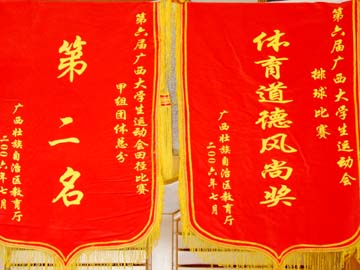 第六届广西大学生运动会田径比赛
甲组团体总分
第二名
广西壮族自治区教育厅
二00六年七月
第六届广西大学生运动会
排球比赛
体育道德风尚奖
广西壮族自治区教育厅
二00六年七月